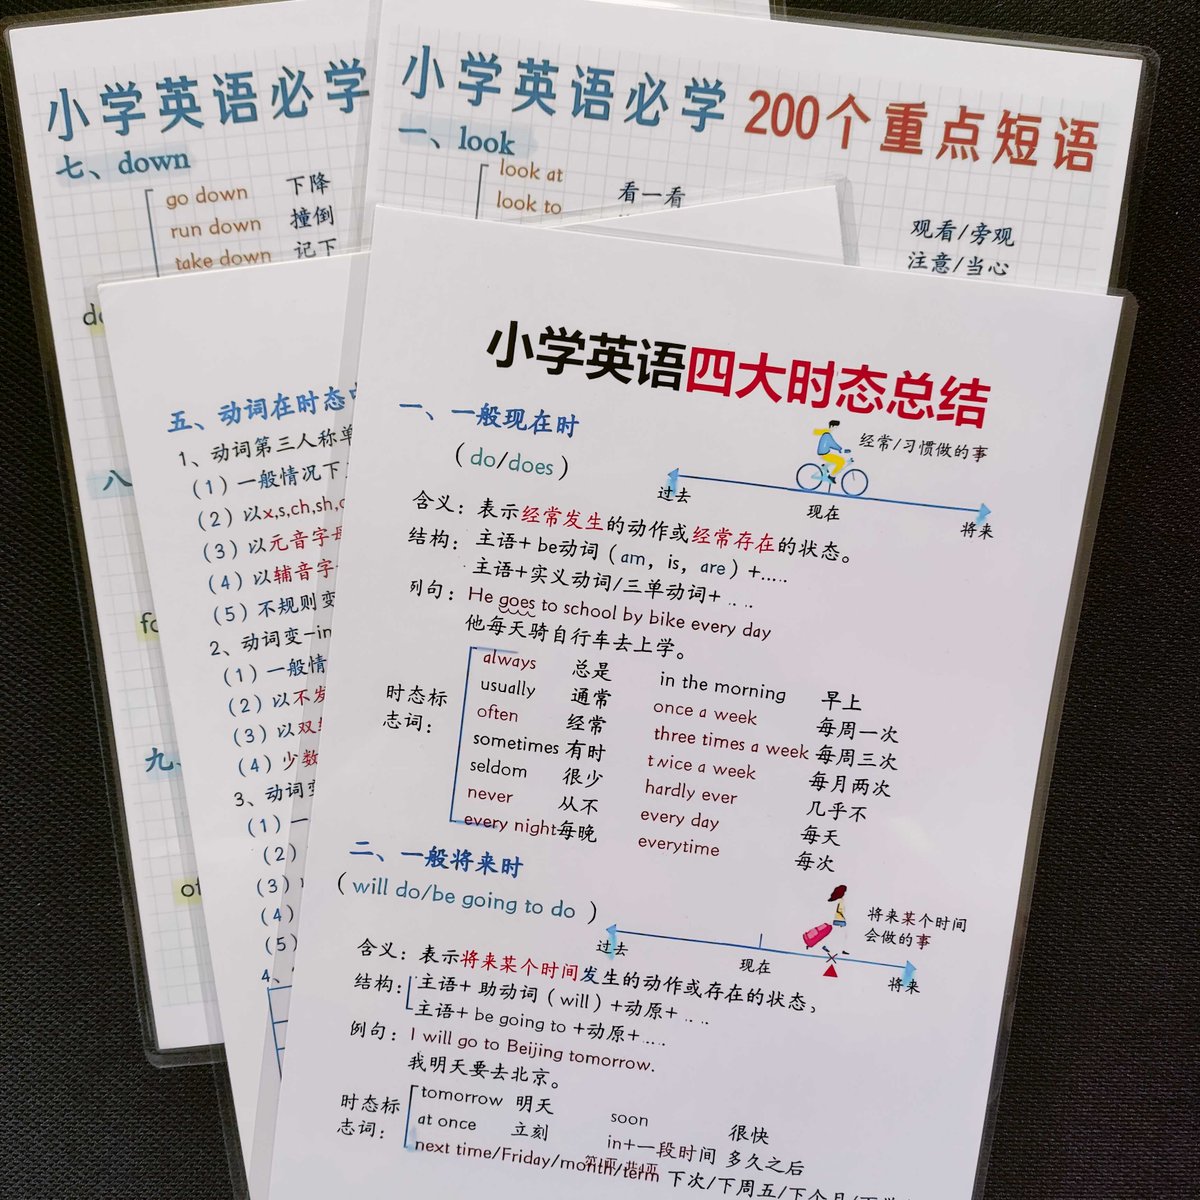 小学英语必学
七、down
go down 下降
run down 撞倒
take down 记下
八
九、
小学英语必学 200个重点短语
一、look
look at 看一看
look to
观看/旁观
注意/当心
五、动词在时态中
1、动词第三人称单
（1）一般情况下
（2）以x,s,ch,sh,
（3）以元音字母
（4）以辅音字
（5）不规则变
2、动词变-in
（1）一般情
（2）以不发
（3）以双
（4）少数
3、动词变
（1）一
（2）
（3）
（4）
（5）
4、
小学英语四大时态总结
一、一般现在时
（do/does）
经常/习惯做的事
过去 现在 将来
含义：表示经常发生的动作或经常存在的状态。
结构：主语+ be动词（am，is，are）+.....
主语+实义动词/三单动词+ ....
列句：He goes to school by bike every day
他每天骑自行车去上学。
时态标志词：
always 总是 in the morning 早上
usually 通常 once a week 每周一次
often 经常 three times a week 每周三次
sometimes 有时 twice a week 每月两次
seldom 很少 hardly ever 几乎不
never 从不 every day 每天
every night 每晚 everytime 每次
二、一般将来时
（will do/be going to do ）
将来某个时间
会做的事
过去 现在 将来
含义：表示将来某个时间发生的动作或存在的状态，
结构：主语+ 助动词（will）+动原+ ....
主语+ be going to +动原+....
例句：I will go to Beijing tomorrow.
我明天要去北京。
时态标志词：
tomorrow 明天 soon 很快
at once 立刻 in+一段时间 多久之后
next time/Friday/month/term 下次/下周五/下个月/下学